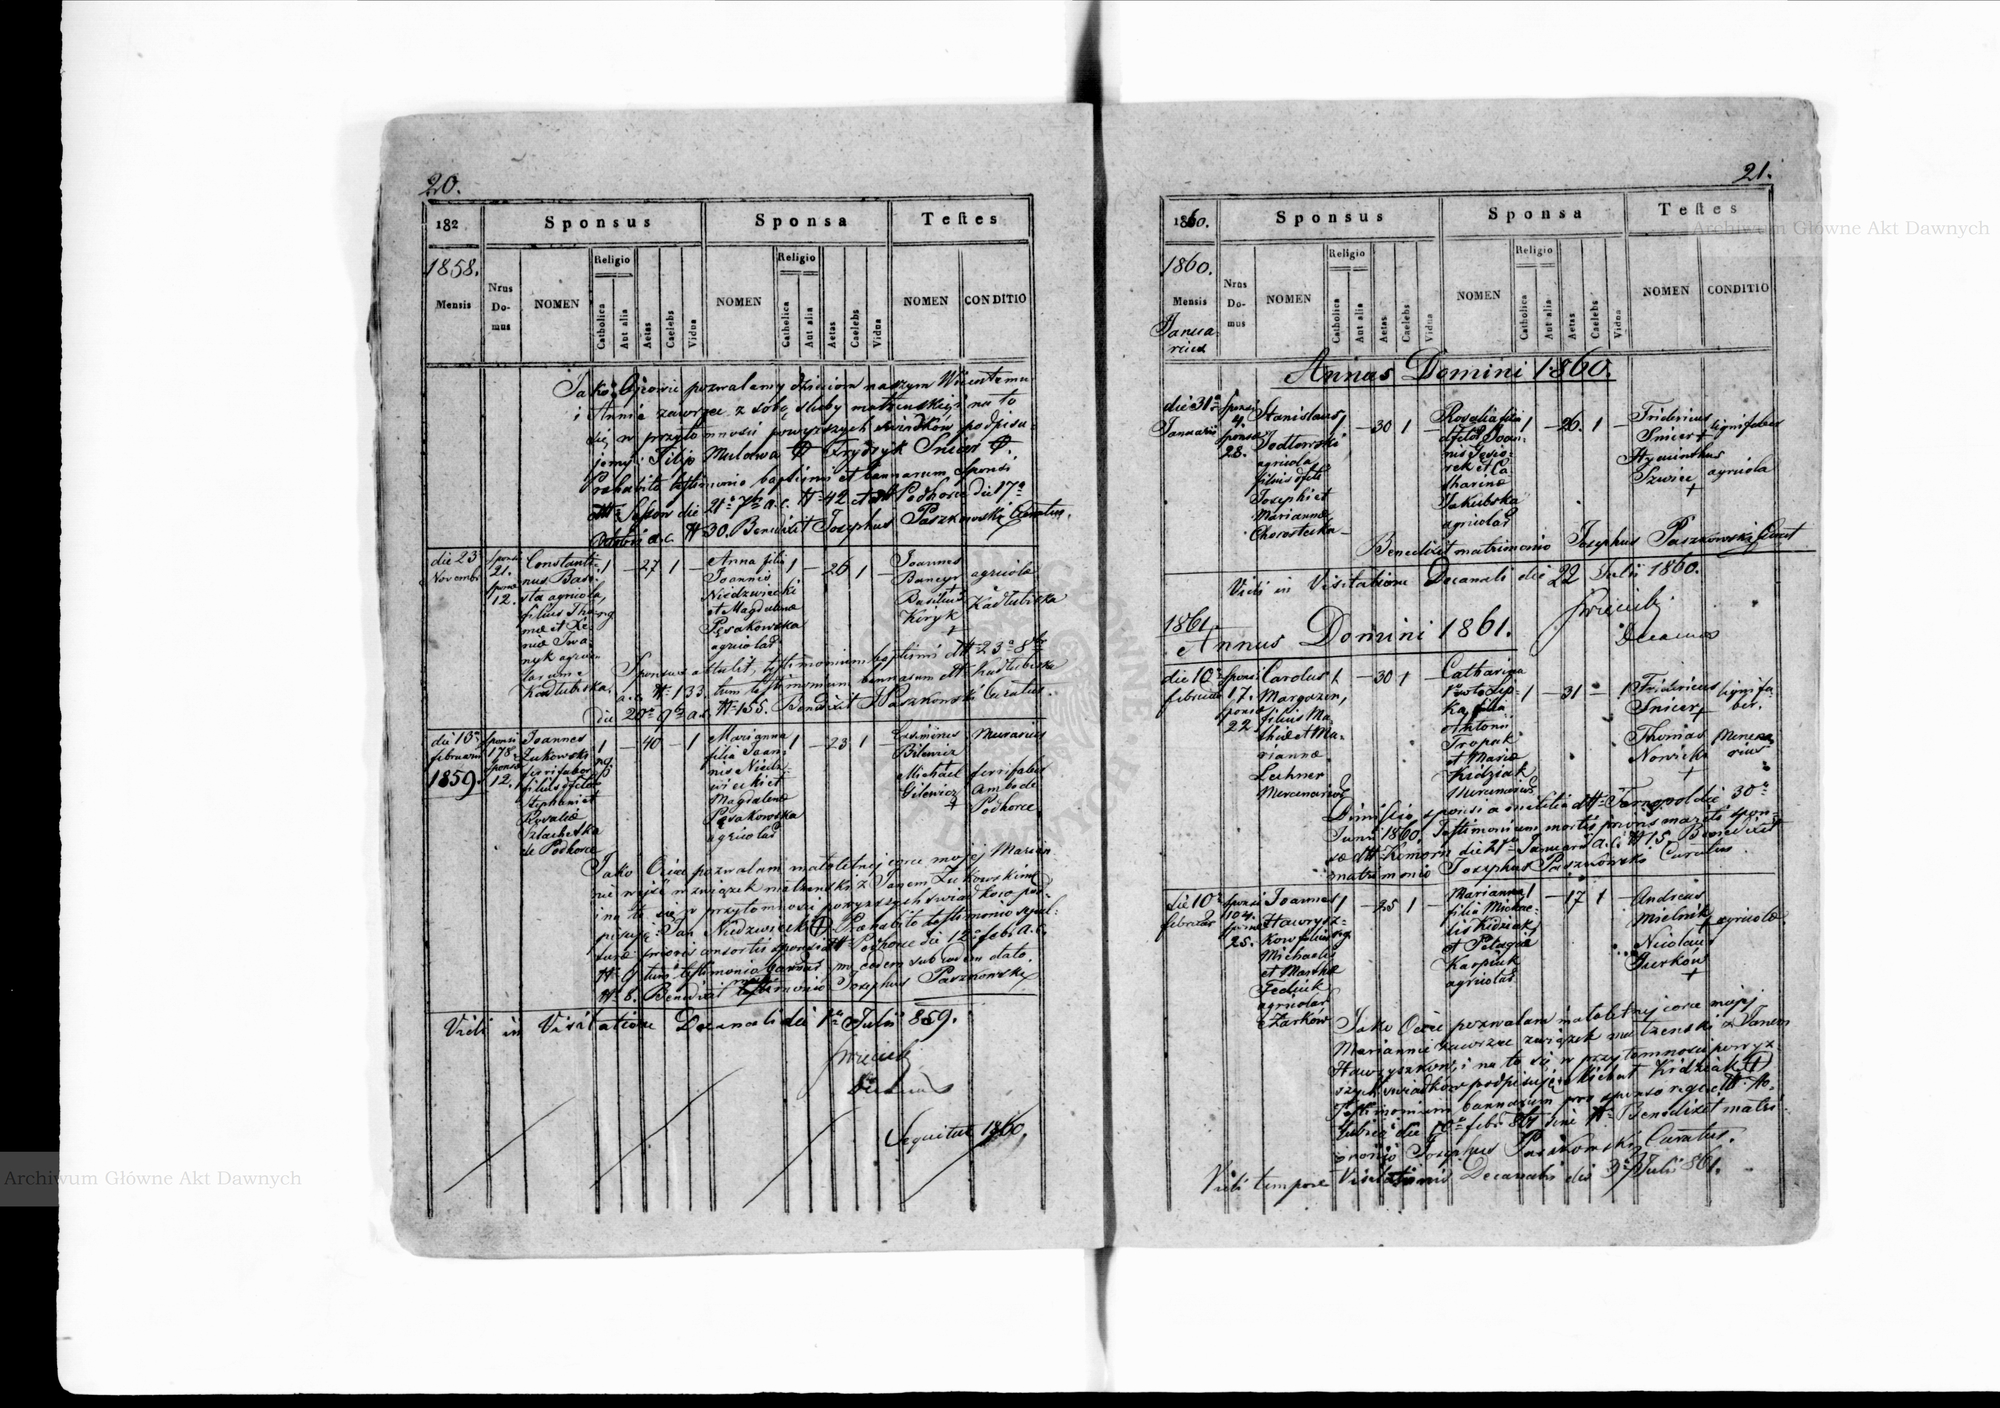 20.
182
Sponsus
Sponsa
Testes
1858.
Mensis
Nrus Domus
NOMEN
Religio
Catholica
Aut alia
Aetas
Caelebs
Vidua
NOMEN
Religio
Catholica
Aut alia
Aetas
Caelebs
Vidua
NOMEN
CONDITIO
Jako Ojcowie pozwalamy dzieciom naszym Wincentemu
i Annie zawrzeć z sobą śluby małżeńskie, i na to
się w przytomności powyższych świadków podpisu-
jemy: Filip Mulawa Frydryk Snicer
Prohabito testimonio baptismi et bannorum Sponsi
die 21 a.c. N 42 et Podhorce die 17a
a.c. N 30. Benedixit Josephus Paszkowski Curatus.
die 23
Novembr
sponsi
21.
sponsæ
12.
Constanti-
nus Basi-
sta agricola,
filius Tho-
mæ et Xe-
niæ Iwa-
nyk agrico-
larum e
Kadłubiska.
1 - 27 1 -
Anna filia
Joannis
Niedzwiecki
et Magdalenæ
Pęsakowska
agricolar
1 - 26 1 -
Joannes
Baneyr
+
Basilius
Kiryk
+
agricola
Kadłubiska
Sponsus attulit testimonium baptismi 23a 8bris
a.c. N 133. tum testimonium bannorum Kadłubiska
die 20a 9bris a.c. N 155. Benedixit J Paszkowski Curatus.
die 15a
februarii
1859.
sponsi
178.
sponsæ
12.
Joannes
Żukowski
ferrifaber
filius
Stephani et
Rosaliæ
Szlachetka
de Podhorce
1 - 40 - 1
Marianna
filia Joan-
nis Niedz-
wiecki et
Magdalenæ
Pęsakowska
agricolar
1 - 23 1
Casimirus
Bilewicz
Michael
Gilewicz
+
murarius
ferrifaber
ambo de
Podhorce
Jako Ociec pozwalam małoletniej corce mojej Marian
nie wejść w związek małżeński z Janem Żukowskim
i na to się w przytomności powyższych świadków pod-
pisuję: Jan Niedzwiecki + Prohabito testimonio sepul-
turæ prioris consortis sponsi Podhorce die 12a febr a.c.
N 9 tum testimonio bannor ejusdem sub eodem dato.
N 8. Benedixit matrimonio Josephus Paszkowski
Vidi in Visitatione Decanali die 1a Julii 859.
Decanus
Sequitur 1860.
21.
1860.
Sponsus
Sponsa
Testes
1860.
Mensis
Janua-
rius
Nrus Domus
NOMEN
Religio
Catholica
Aut alia
Aetas
Caelebs
Vidua
NOMEN
Religio
Catholica
Aut alia
Aetas
Caelebs
Vidua
NOMEN
CONDITIO
Annus Domini 1860.
die 31a
Januarii
sponsi
4.
sponsæ
28.
Stanislaus
Jodłowski
agricola
filius
Josephi et
Mariannæ
Chorostecka
1 - 30 1 -
Rosalia filia
Joan-
nis Jezio-
rek et Ca-
tharinæ
Jakubska
agricolar
1 - 26. 1 -
Fridericus
Snicer +
Hyacinthus
Szwiec
+
lignifaber
agricola
Benedixit matrimonio Josephus Paszkowski Curat
Vidi in Visitatione Decanali die 22 Julii 1860.
Decanus
1861.
Annus Domini 1861.
die 10a
februar
sponsi
17.
sponsæ
22.
Carolus
Margazyn,
filius Ma-
thiæ et Ma-
riannæ
Lechner
Mercenarior
1 - 30 1 -
Catharina
filia
Antonii
Tropak
et Mariæ
Kidziak
Mercenarior
1 - 31 - 1
Fridericus
Snicer +
Thomas
Nowicki
+
lignifa-
ber.
Mercena-
rius
Dimissio sponsi a militia Tarnopol die 30a
Junii 1860. Testimonium mortis prioris mariti spon-
sæ Komorn die 27a Januarii a.c. N 15. Benedixit
matrimonio Josephus Paszkowski Curatus.
die 10a
februar
sponsi
104.
sponsæ
25.
Joannes
Hawrysz-
kow filius
Michaelis
et Marthæ
Fediuk
agricolar
e Żarków
1 - 25 1 -
Marianna
filia Michae-
lis Kidziak
et Pelagiæ
Karpiuk
agricolar
1 - 17 1
Andreas
Mielnik
+
Nicolaus
Jurków
+
agricolæ
Jako Ociec pozwalam małoletniej corce mojej
Mariannie zawrzeć związek małżenski z Janem
Hawryszków, i na to się w przytomności powyż-
szych świadków podpisuję: Michał Kidziak +
Testimonium bannorum pro sponso
die 10a febr 861 sine N. Benedixit matri-
monio Josephus Paszkowski Curatus.
Vidi tempore Visitationis Decanalis die 3a Julii 861.
Archiwum Główne Akt Dawnych
Archiwum Główne Akt Dawnych